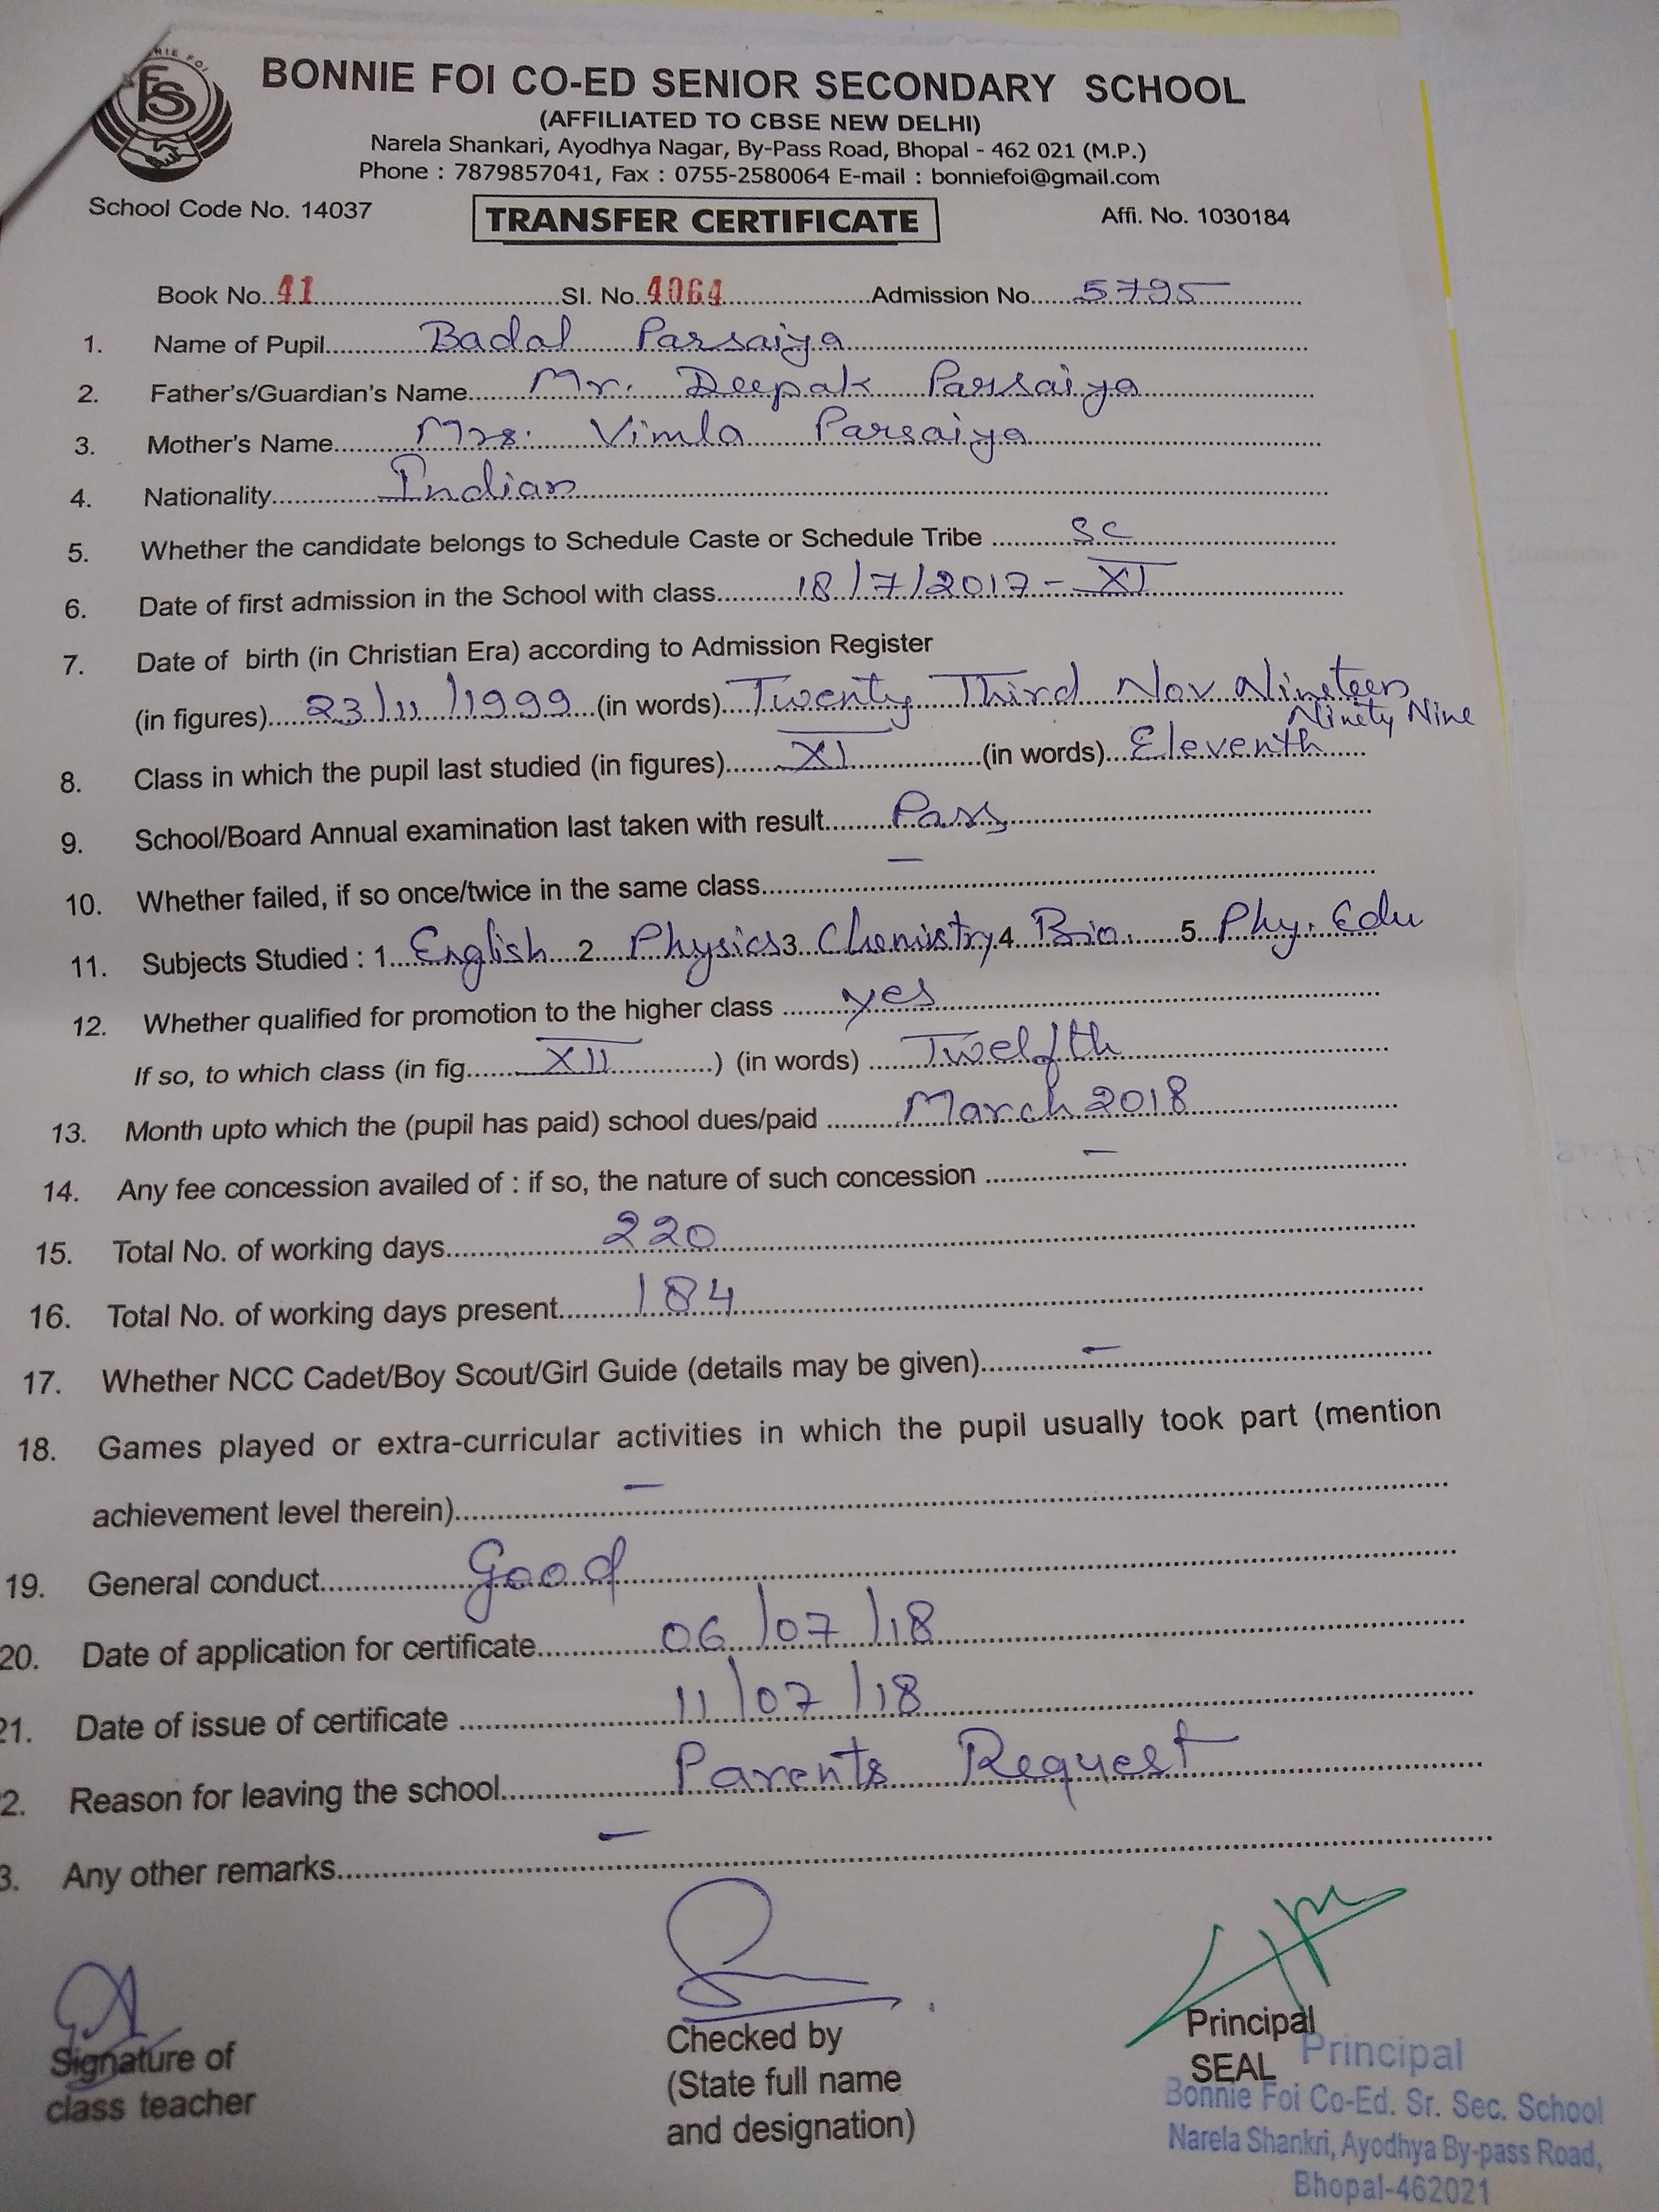 NIE FOI
FS
BONNIE FOI CO-ED SENIOR SECONDARY SCHOOL
(AFFILIATED TO CBSE NEW DELHI)
Narela Shankari, Ayodhya Nagar, By-Pass Road, Bhopal - 462 021 (M.P.)
Phone : 7879857041, Fax : 0755-2580064 E-mail : bonniefoi@gmail.com
School Code No. 14037 TRANSFER CERTIFICATE Affi. No. 1030184
Book No. 41 Sl. No. 4064 Admission No. 5795
1. Name of Pupil Badal Parsaiya
2. Father's/Guardian's Name Mr. Deepak Parsaiya
3. Mother's Name Mrs. Vimla Parsaiya
4. Nationality Indian
5. Whether the candidate belongs to Schedule Caste or Schedule Tribe SC
6. Date of first admission in the School with class 18/7/2017 - XI
7. Date of birth (in Christian Era) according to Admission Register
(in figures) 23/11/1999 (in words) Twenty Third Nov Nineteen
Ninety Nine
8. Class in which the pupil last studied (in figures) XI (in words) Eleventh
9. School/Board Annual examination last taken with result Pass
10. Whether failed, if so once/twice in the same class —
11. Subjects Studied : 1 English 2 Physics 3 Chemistry 4 Bio. 5 Phy. Edu
12. Whether qualified for promotion to the higher class yes
If so, to which class (in fig. XII ) (in words) Twelfth
13. Month upto which the (pupil has paid) school dues/paid March 2018
14. Any fee concession availed of : if so, the nature of such concession —
15. Total No. of working days 220
16. Total No. of working days present 184
17. Whether NCC Cadet/Boy Scout/Girl Guide (details may be given) —
18. Games played or extra-curricular activities in which the pupil usually took part (mention
achievement level therein) —
19. General conduct Good
20. Date of application for certificate 06/07/18
21. Date of issue of certificate 11/07/18
2. Reason for leaving the school Parents Request
3. Any other remarks —
Signature of
class teacher
Checked by
(State full name
and designation)
Principal
SEAL
Principal
Bonnie Foi Co-Ed. Sr. Sec. School
Narela Shankri, Ayodhya By-pass Road,
Bhopal-462021